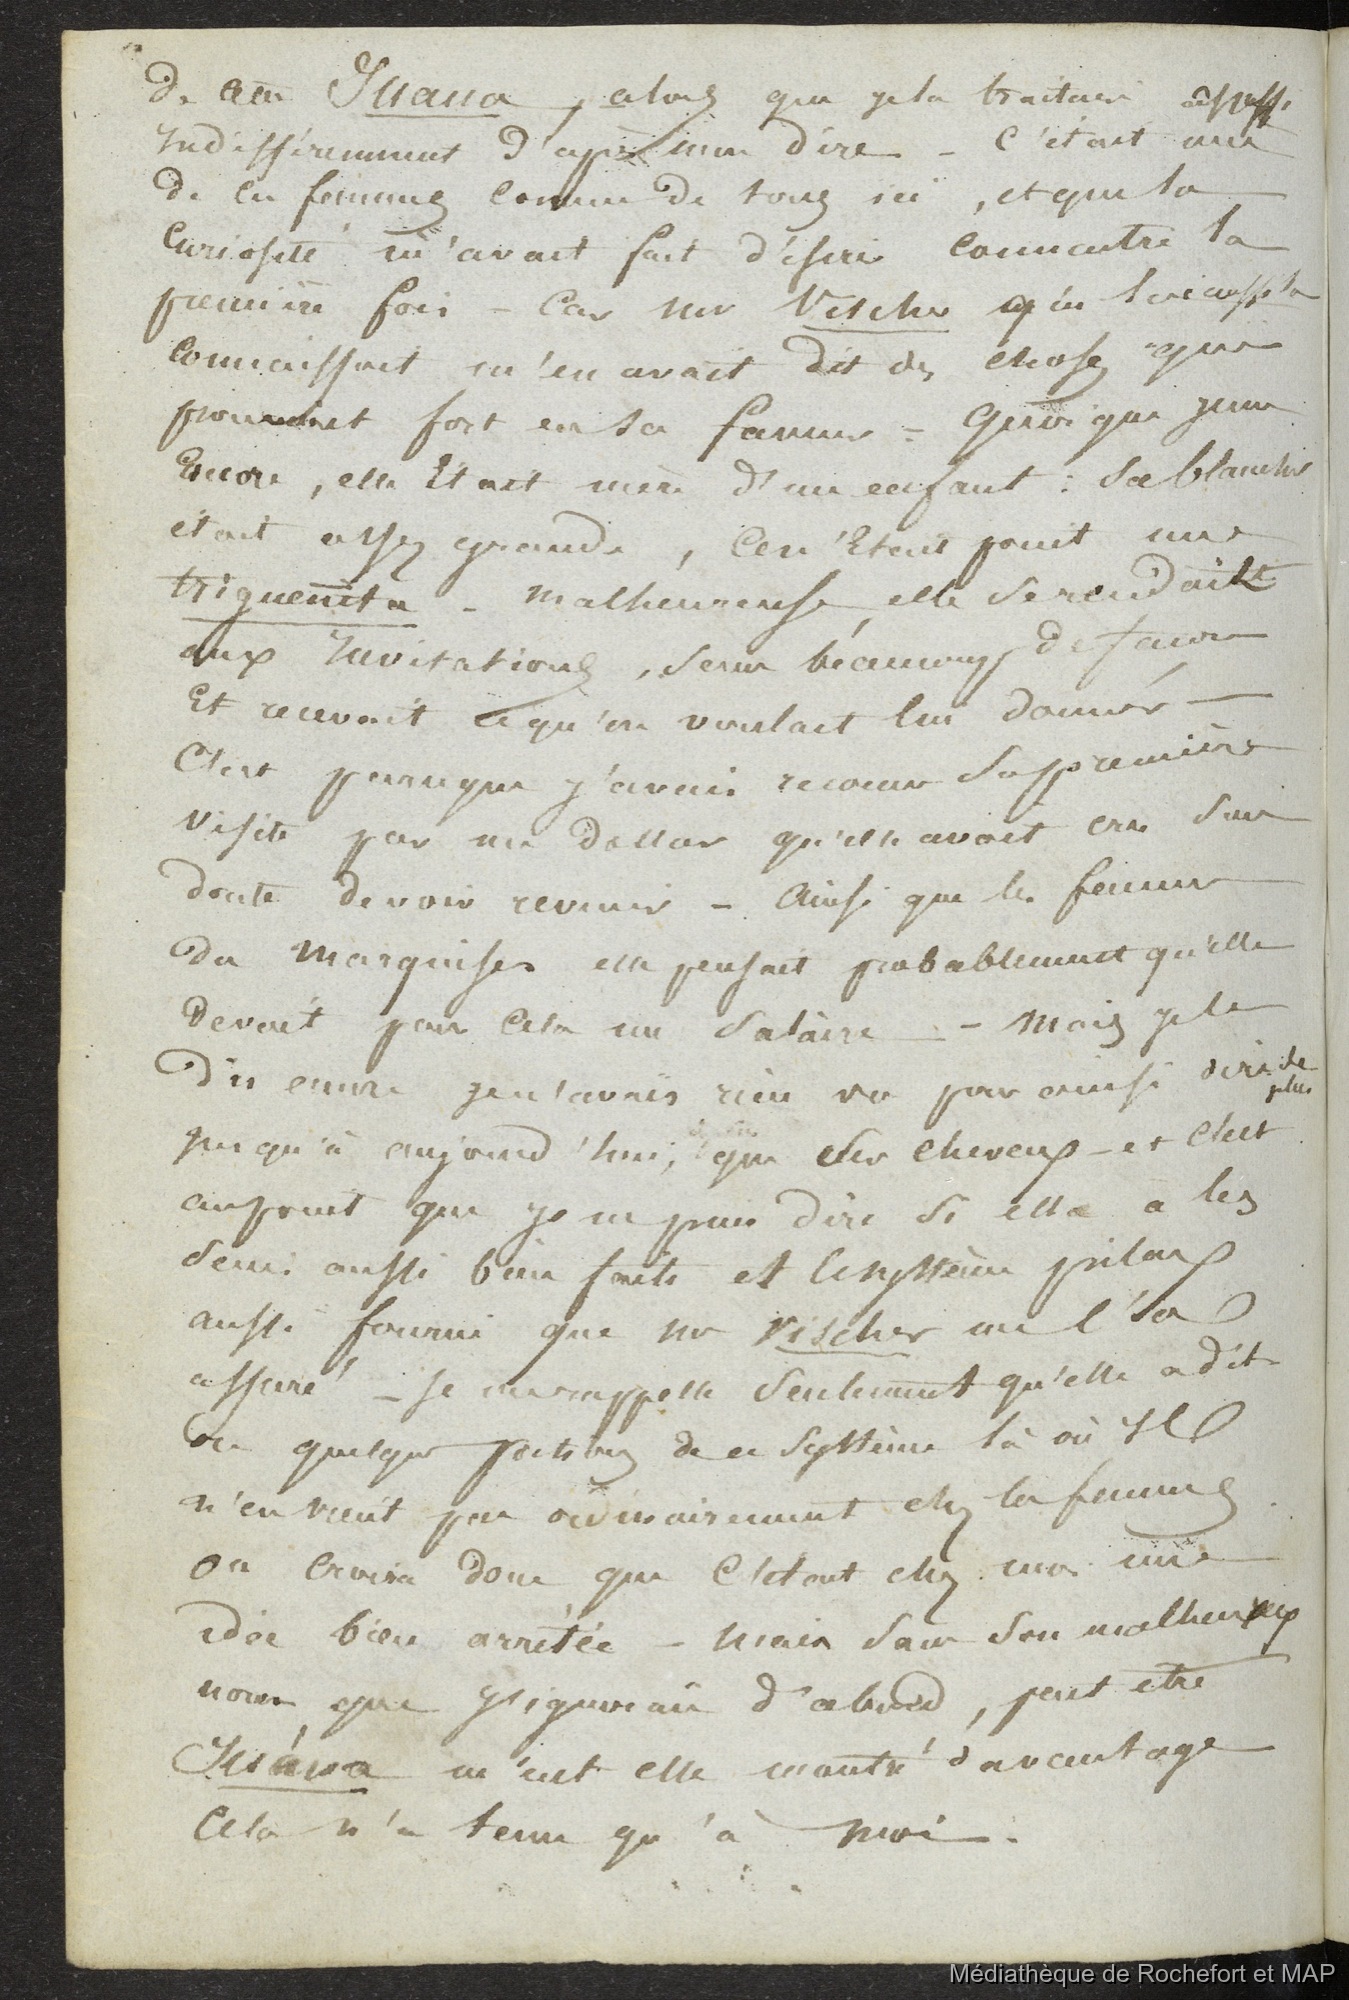 de cette Juana, alors que je la traitais assez
Indifféremment d'après mon dire - C'était une
de ces femmes connue de tous ici, et que la
Curiosité m'avait fait désirer connaitre la
première fois - Car Mr Vischer qui
connaissait m'en avait dit des choses qui
fort en sa faveur - Quoique jeune
Encore, elle Etait mère d'un enfant : Sa blancheur
était assez grande, Ce n'Etait point une
trigueñita - Malheureuse, elle se rendait
aux Invitations, sans beaucoup de façon
Et recevait ce qu'on voulait lui donner -
C'est parceque j'avais reconnu Sa première
visite par un Dollar qu'elle avait cru Sans
doute devoir revenir - Ainsi que les femmes
des Marquises elle pensait probablement qu'elle
devait pour Cela un Salaire - Mais je le
dis encore je n'avais rien vu pour ainsi dire de plus
jusqu'à aujourd'hui, que ses cheveux - et C'est
au point que je ne puis dire si elle a les
seins aussi bien faits et le système pileux
aussi fourni que Mr Vischer me l'a
assuré - Je me rappelle Seulement qu'elle a dit-
on quelques de ce Système là où Il
n'en vient pas ordinairement chez la femme
On Croira donc que C'Etait chez moi une
idée bien arrêtée - Mais Sans Son malheureux
que d'abord, peut être
Juana m'eut elle montré d'avantage
Cela n'a tenu qu'à Moi.
Médiathèque de Rochefort et MAP